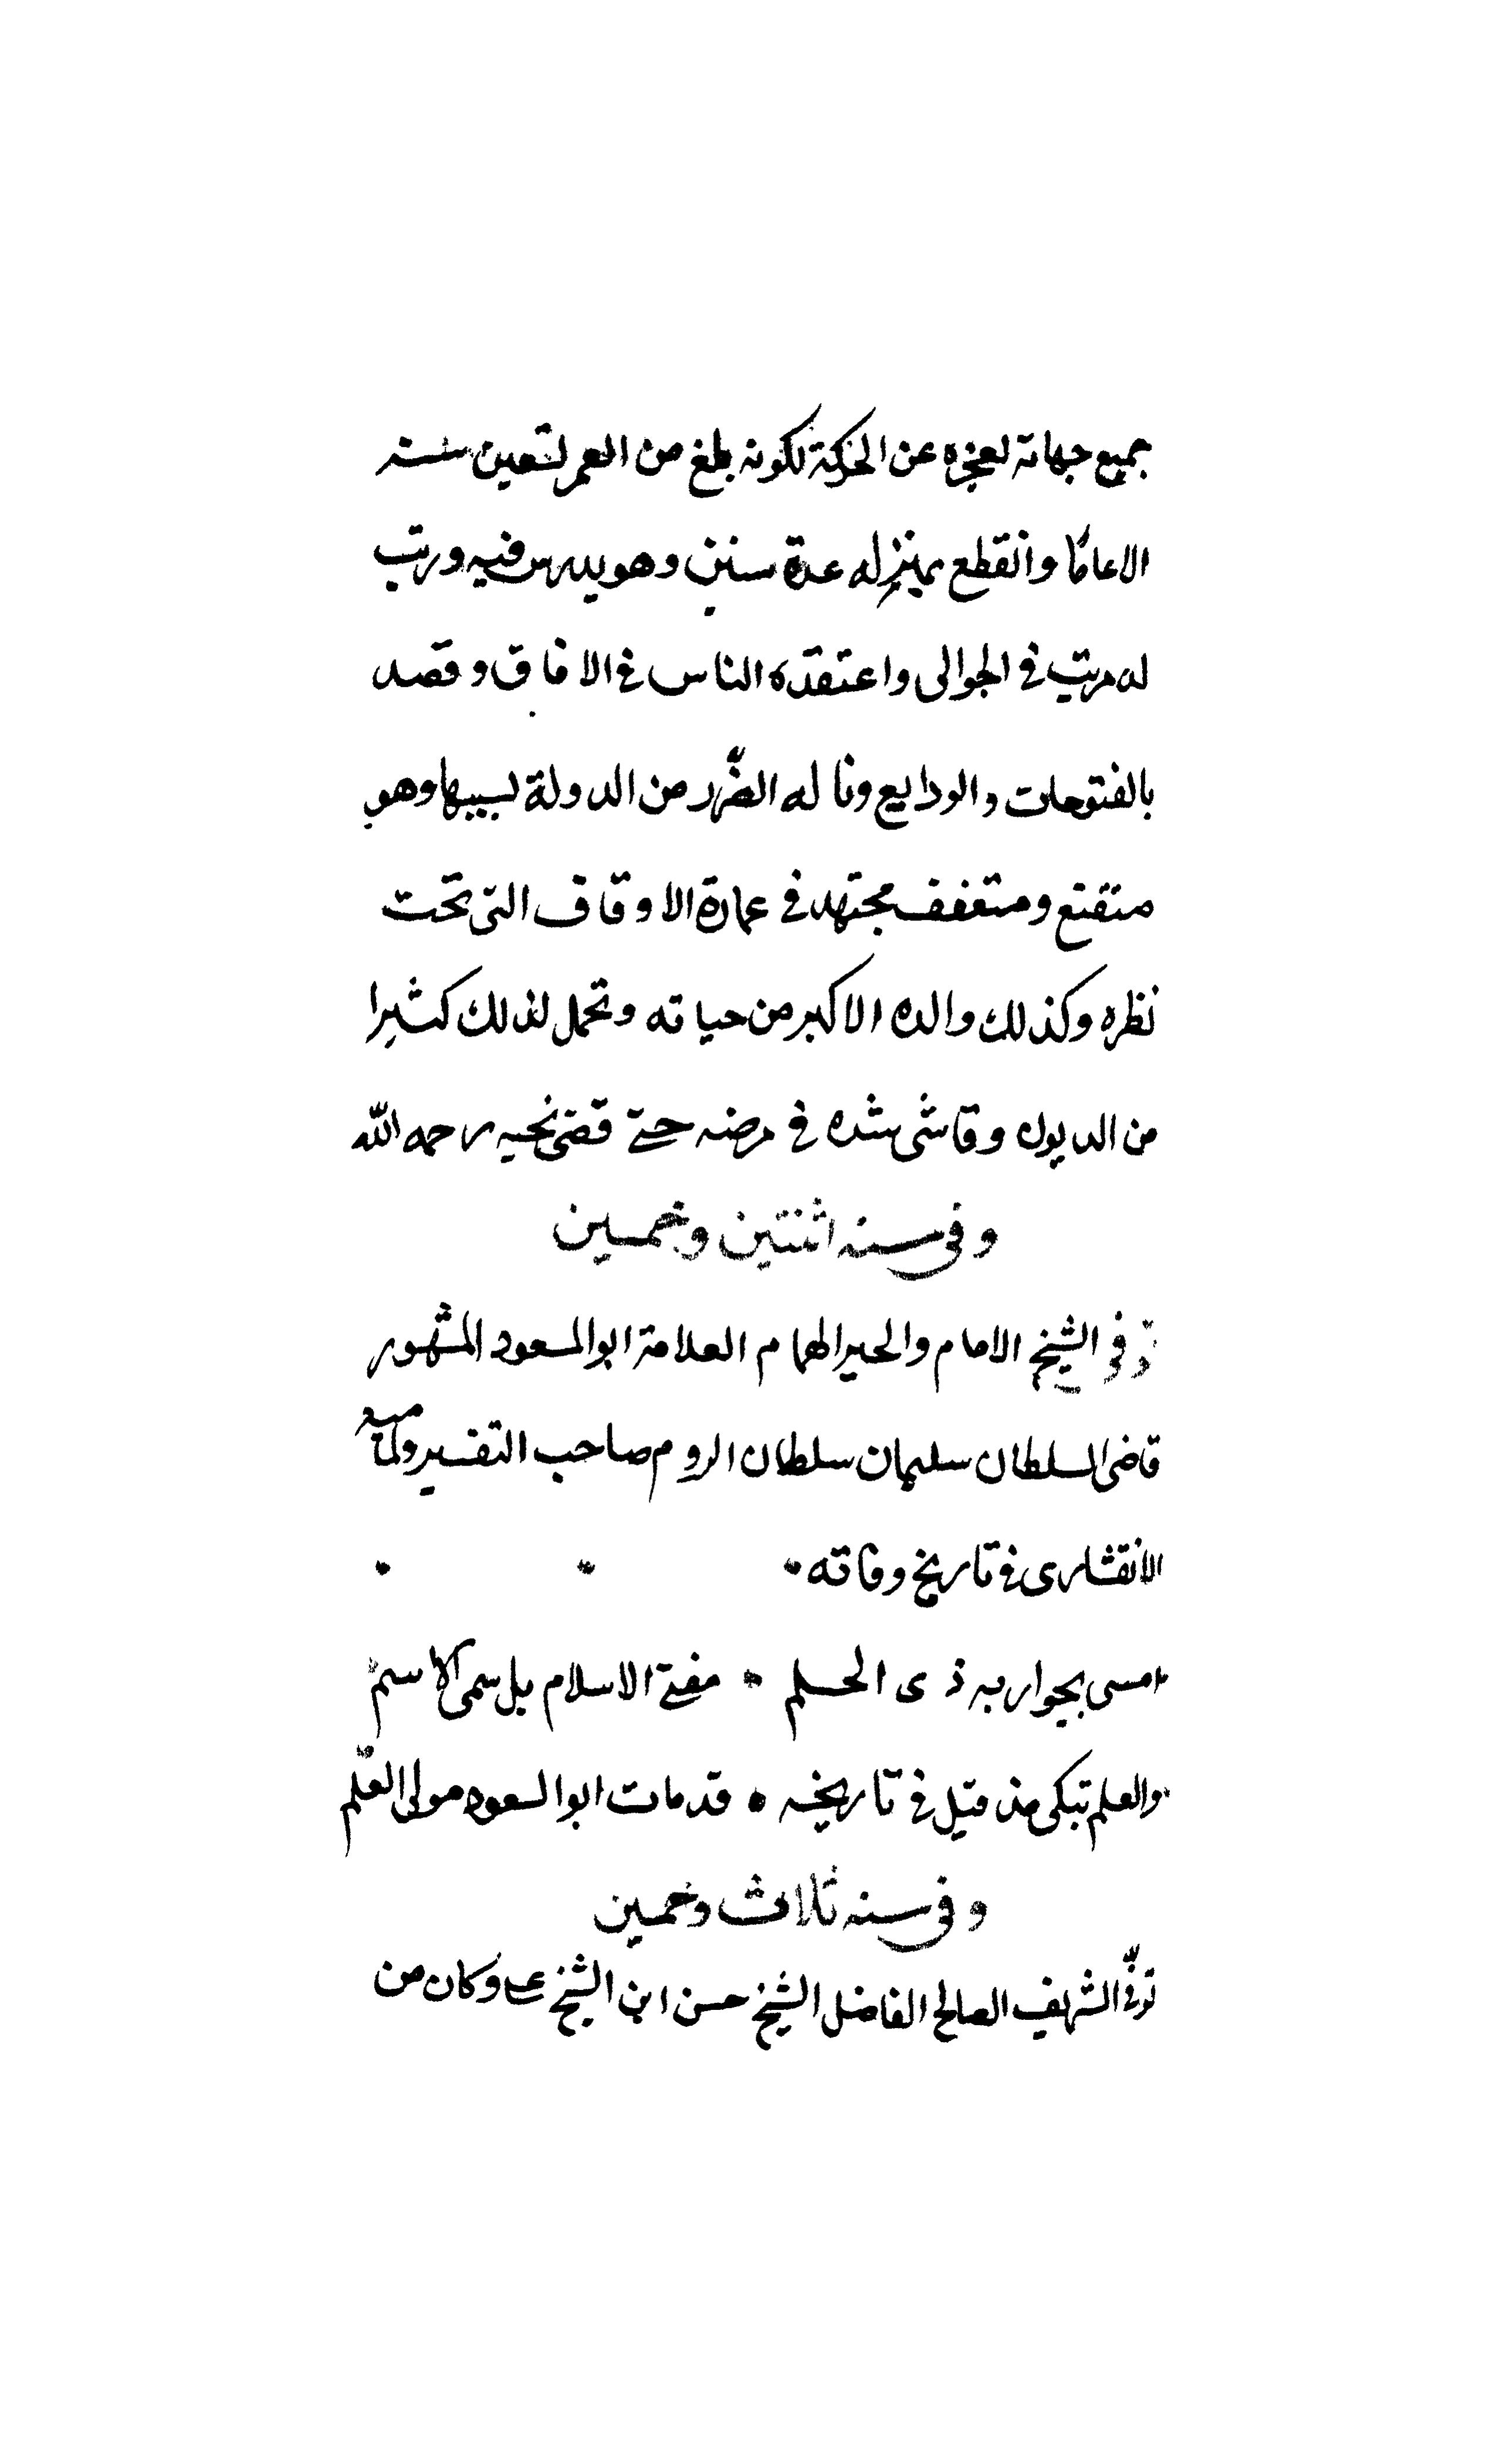 جميع جهاته لعجزه عن الحركة لكونه بلغ من العمر لتسعين سنته
الاعاما وانقطع بمنزله عدة سنين وهو يدرس فيه ورتب
له مرتب في الجوالى واعتقده الناس في الافاق وقصد
بالفتوحات والودايع وناله الضرر من الدولة لسببها وهو
متقنع ومتعفف مجتهد في عمارة الاوقاف التى تحت
نظره وكذلك والده الاكبر من حياته وتحمل لذلك كثيرا
من الديون وقاشى شده في مرضه حتى قضى نحبه رحمه الله
وفى سنه اثنتين وخمسين
توفى الشيخ الامام والحبر الهمام العلامة ابو السعود المشهور
قاضى السلطان سليمان سلطان الروم صاحب التفسير ولماميه
الانقشارى في تاريخ وفاته
امسى بجوار به ذى الحلم مفتى الاسلام بل سمى الاسم
والعلم تبكى مذ قيل في تاريخه قد مات ابو السعود مولى العلم
وفى سنه ثلاث وخمسين
توفّى الشريف الصالح الفاضل الشيخ حسن ابن الشيخ على وكان من